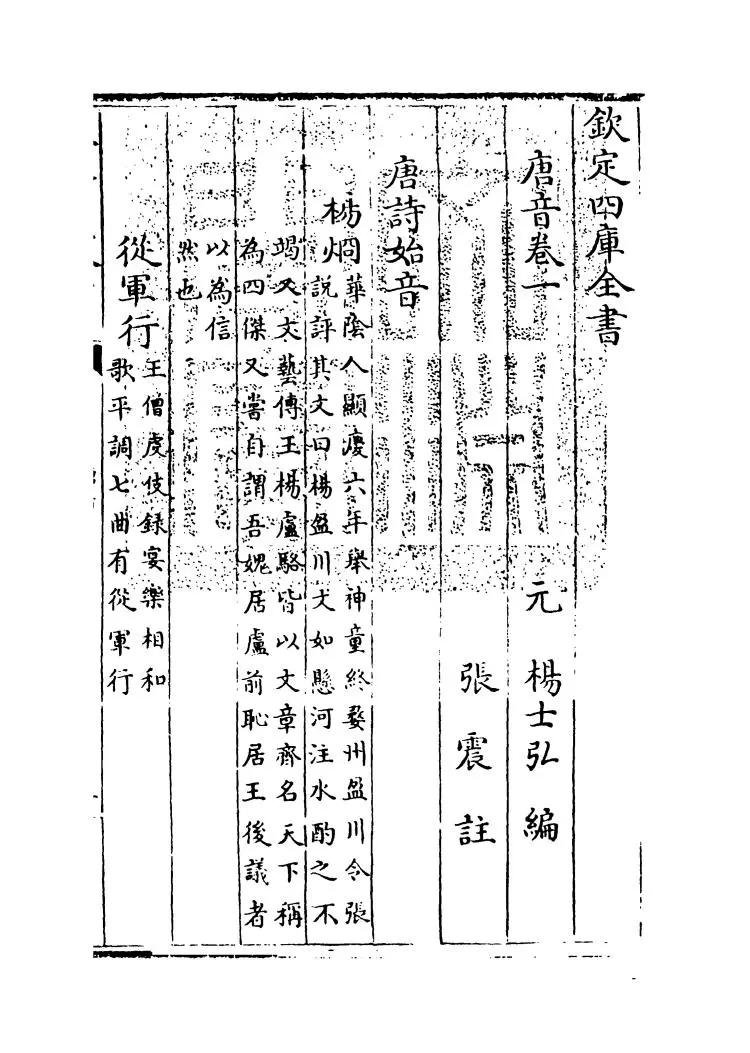 欽定四庫全書
唐音卷一
元 楊士弘 編
張震 註
唐詩始音
楊烱
華陰人顯慶六年舉神童終婺州盈川令張
說評其文曰楊盈川文如懸河注水酌之不
竭又文藝傳王楊盧駱皆以文章齊名天下稱
為四傑又嘗自謂吾媿居盧前恥居王後議者
以為信
然也
從軍行
王僧䖍伎錄宴樂相和
歌平調七曲有從軍行